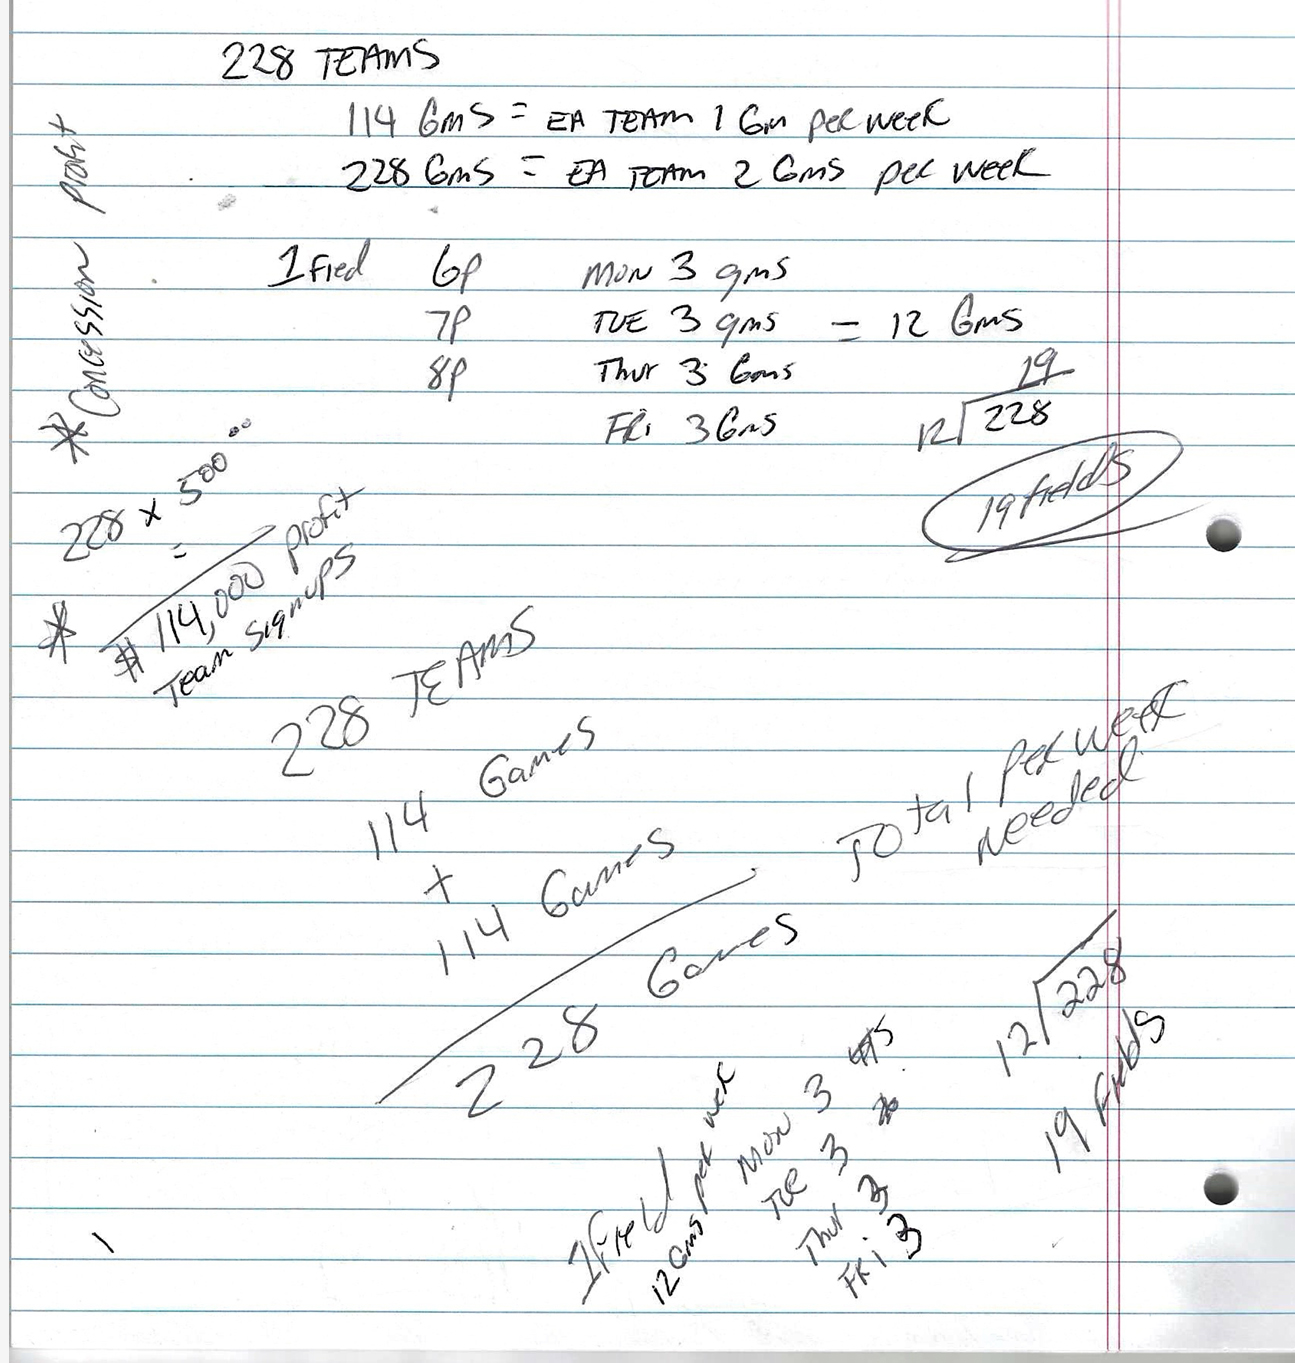 228 TEAMS
114 GmS = EA TEAM 1 Gm per week
228 GmS = EA TEAM 2 Gms per week
1 Fied 6p Mon 3 gms
7p TUE 3 gms = 12 Gms
8p Thur 3 Gms
FRi 3 Gms
19
12 228
19 fields
* Concession profit
228 x 500
=
* $ 114,000 profit
Team Signups
228 TEAMS
114 Games
+
114 Games
228 Games
Total per week
needed
1 Field
12 Gms per week
Mon 3
Tue 3
Thur 3
FRi 3
12 228
19 Fields